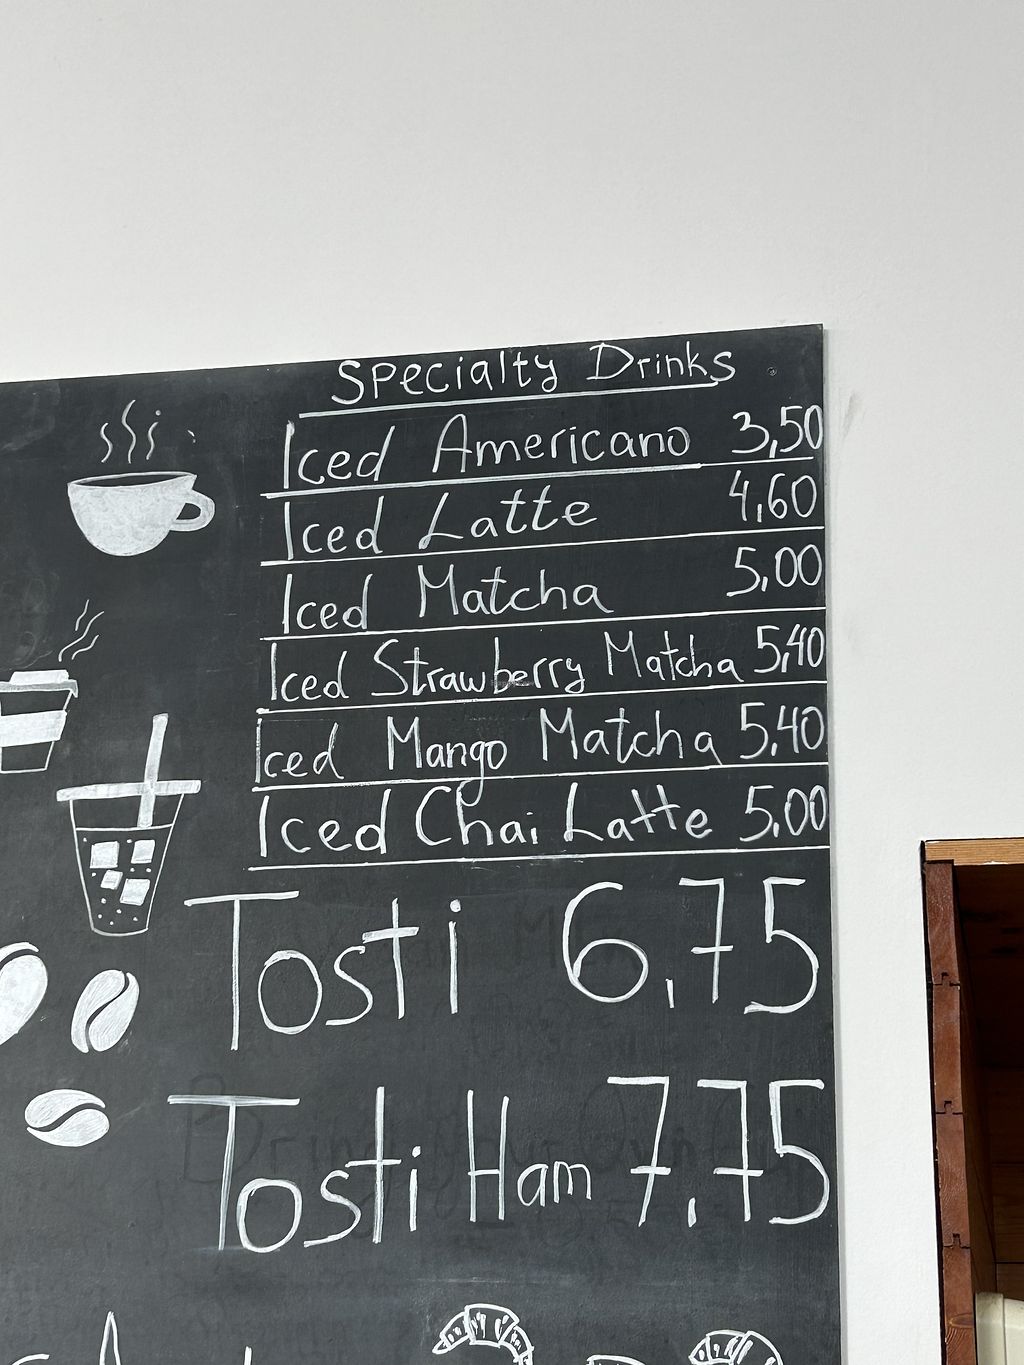 Specialty Drinks
Iced Americano 3,50
Iced Latte 4,60
Iced Matcha 5,00
Iced Strawberry Matcha 5,40
Iced Mango Matcha 5,40
Iced Chai Latte 5,00
Tosti 6,75
Tosti Ham 7,75